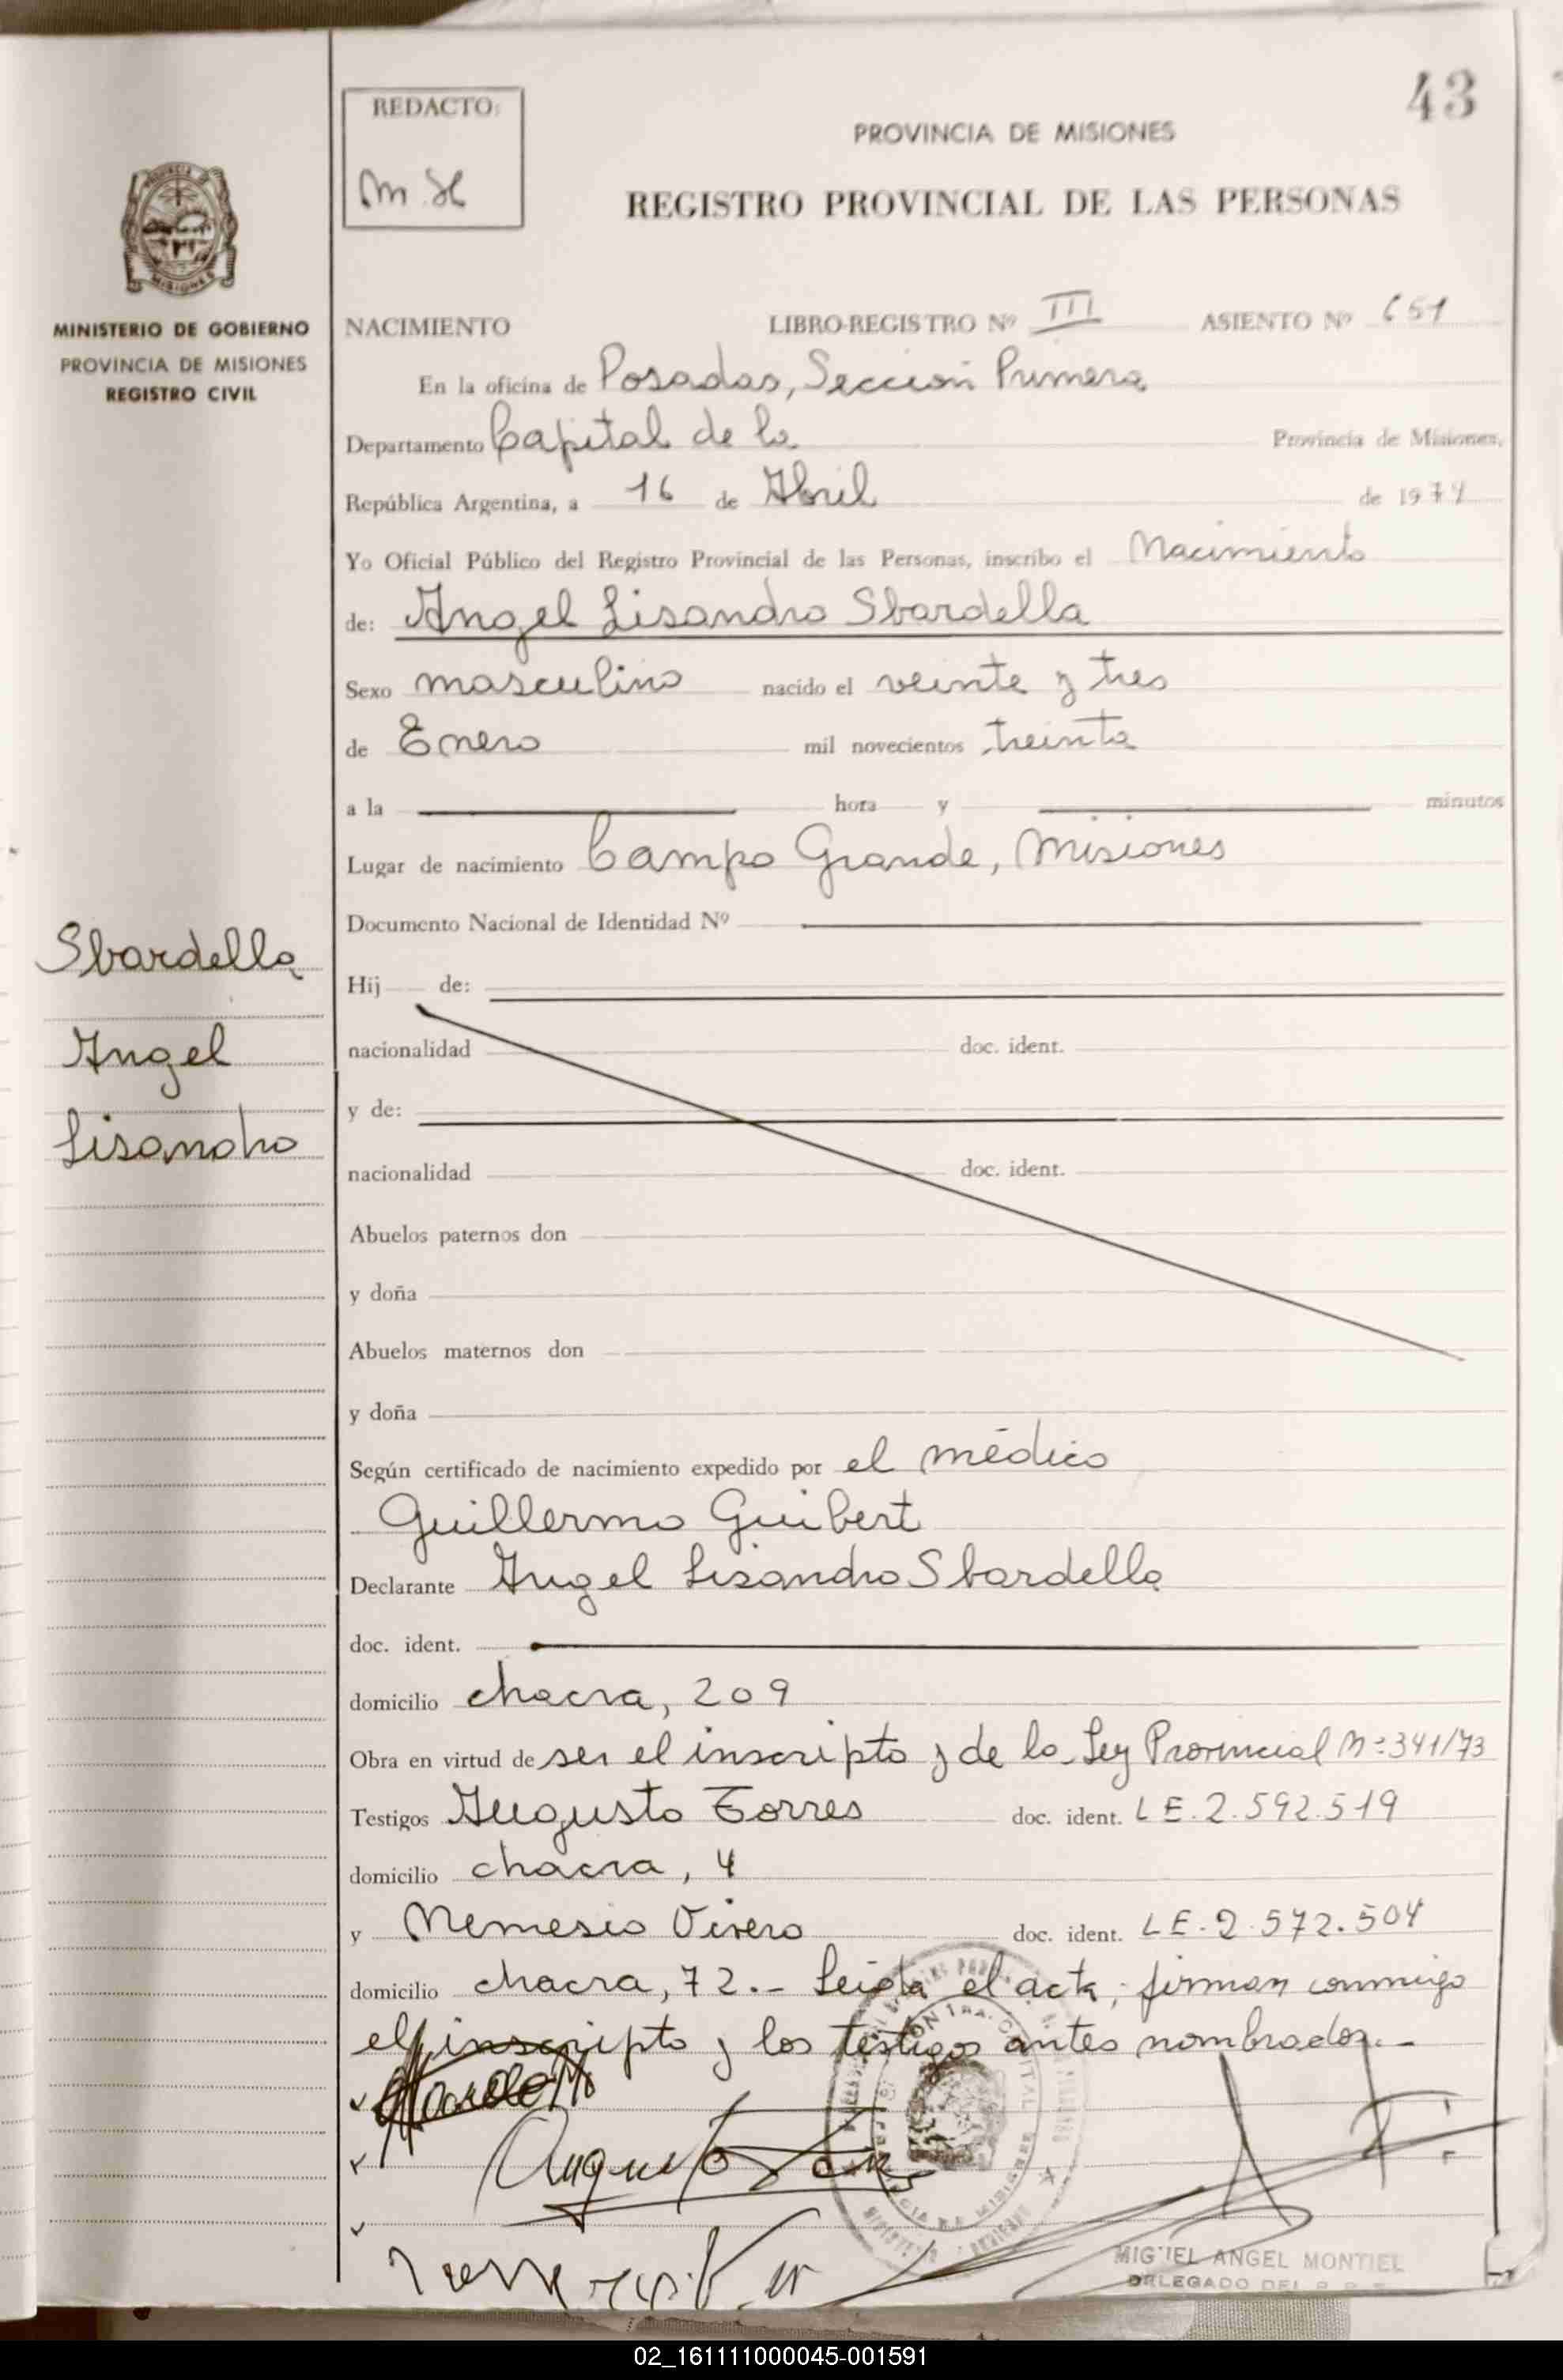 43
REDACTO:
M. SC
PROVINCIA DE MISIONES
REGISTRO PROVINCIAL DE LAS PERSONAS
MISIONES
MINISTERIO DE GOBIERNO
PROVINCIA DE MISIONES
REGISTRO CIVIL
NACIMIENTO LIBRO-REGISTRO Nº III ASIENTO Nº 651
En la oficina de Posadas, Sección Primera
Departamento Capital de la Provincia de Misiones,
República Argentina, a 16 de Abril de 1974
Yo Oficial Público del Registro Provincial de las Personas, inscribo el Nacimiento
de: Angel Lisandro Sbardella
Sexo masculino nacido el veinte y tres
de Enero mil novecientos treinta
a la hora y minutos
Lugar de nacimiento Campo Grande, Misiones
Documento Nacional de Identidad Nº
Sbardella
Angel
Lisandro
Hij de:
nacionalidad doc. ident.
y de:
nacionalidad doc. ident.
Abuelos paternos don
y doña
Abuelos maternos don
y doña
Según certificado de nacimiento expedido por el médico
Guillermo Guibert
Declarante Angel Lisandro Sbardella
doc. ident.
domicilio chacra, 209
Obra en virtud de ser el inscripto y de la Ley Provincial Nº 341/73
Testigos Augusto Torres doc. ident. LE. 2.592.519
domicilio chacra, 4
y Nemesio Vivero doc. ident. LE. 2.572.504
domicilio chacra, 72.- Leida el acta, firman conmigo
el inscripto y los testigos antes nombrados.-
MIGUEL ANGEL MONTIEL
DELEGADO DEL R. P.
02_161111000045-001591